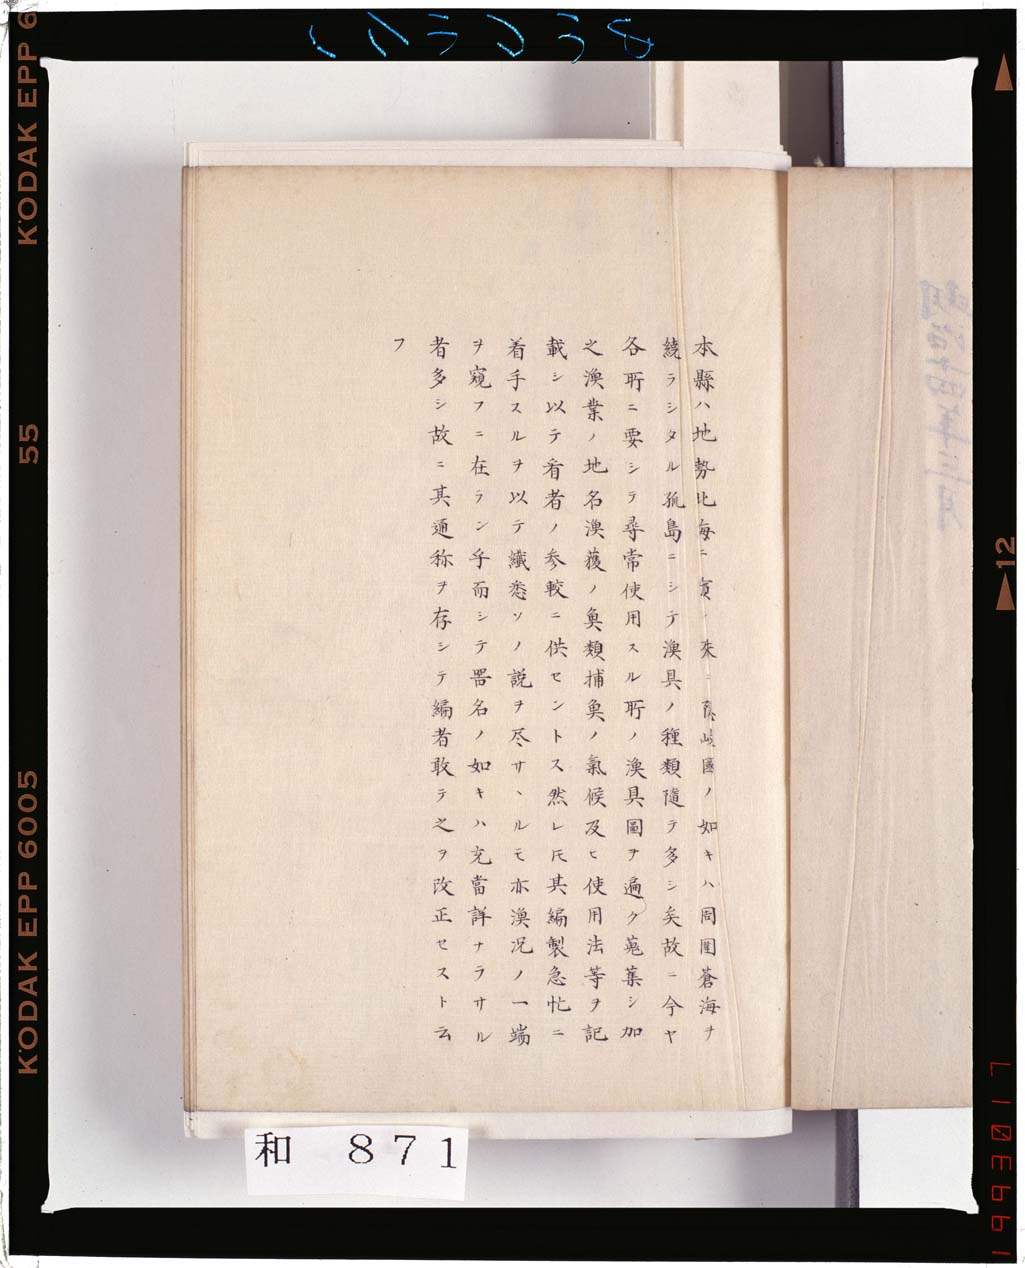 本縣ハ地勢北海ニ瀕シ殊ニ隠岐國ノ如キハ周圍蒼海ヲ
繞ラシタル孤島ニシテ漁具ノ種類隨テ多シ矣故ニ今ヤ
各所ニ要シテ尋常使用スル所ノ漁具圖ヲ遍ク蒐集シ加
之漁業ノ地名漁獲ノ魚類捕魚ノ氣候及ヒ使用法等ヲ記
載シ以テ看者ノ参較ニ供セントス然レ𪜈其編製急忙ニ
着手スルヲ以テ纖悉ソノ説ヲ尽サヽルモ亦漁况ノ一端
ヲ窺フニ在ラン乎而シテ噐名ノ如キハ充當詳ナラサル
者多シ故ニ其通称ヲ存シテ編者敢テ之ヲ改正セスト云
フ
明治十四年三月
和 871
KODAK EPP 6
55
KODAK EPP 6005
12
1993017